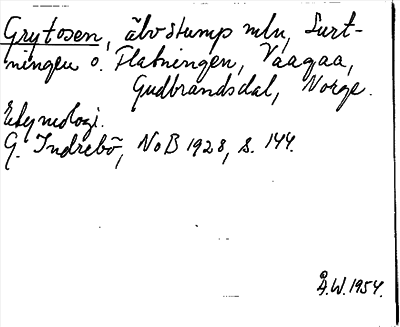 Grytosen, älvstump mln, Surt-
ningen o. Flatningen, Vaagaa,
Gudbrandsdal, Norge.
Etymologi.
G. Indrebö, NoB 1928, s. 144.
Å.W. 1954.